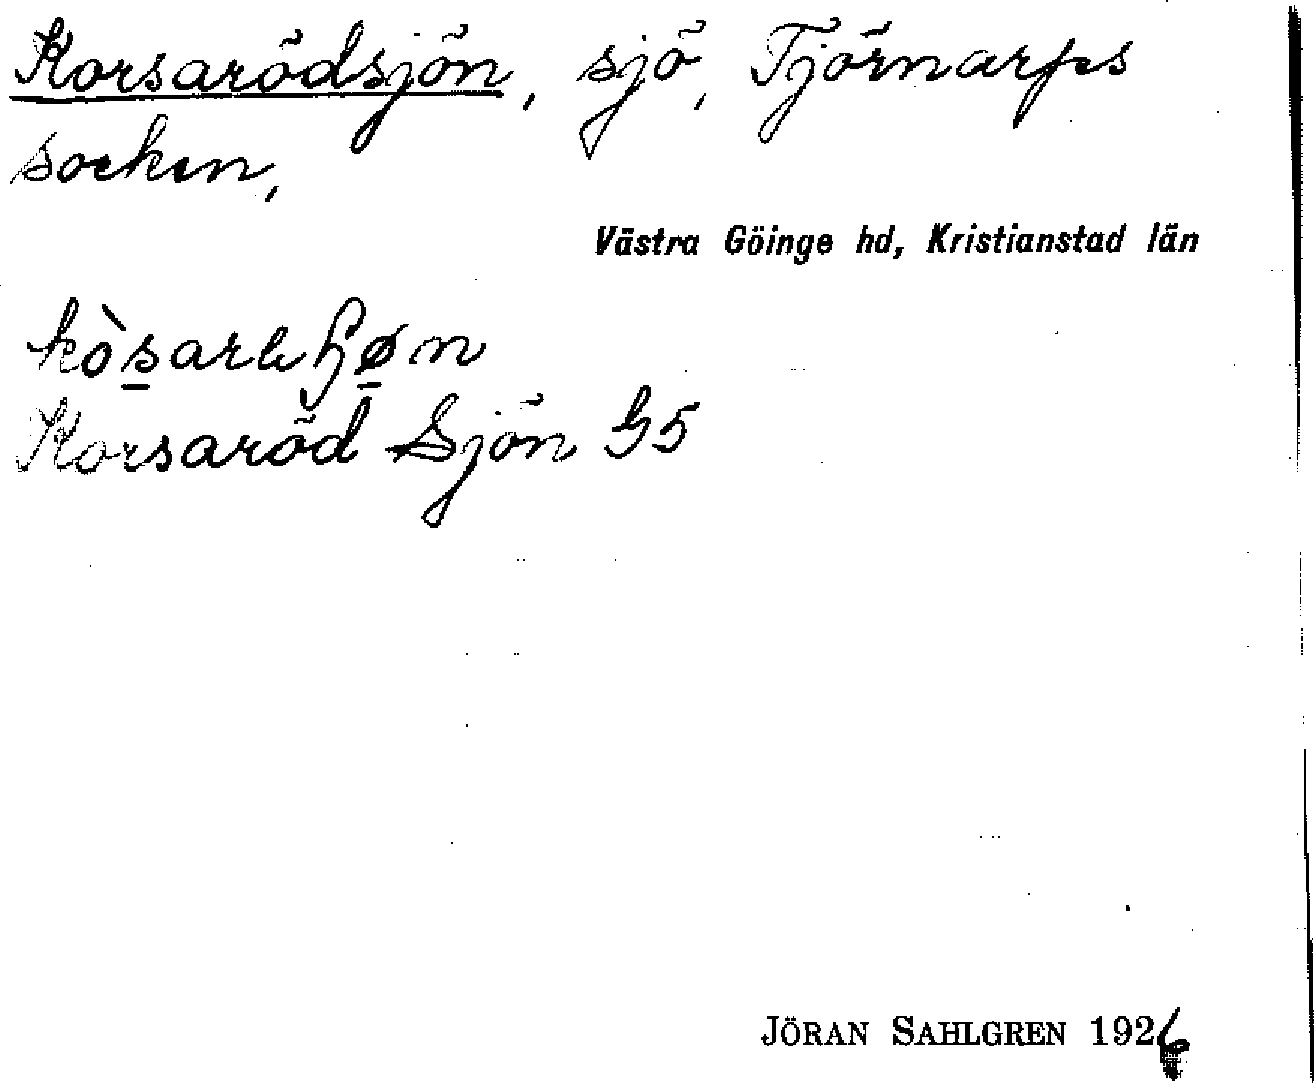 Korsarödsjön, sjö, Tjörnarps
socken,
Västra Göinge hd, Kristianstad län
Korsaröd Sjön G5
JÖRAN SAHLGREN 1926